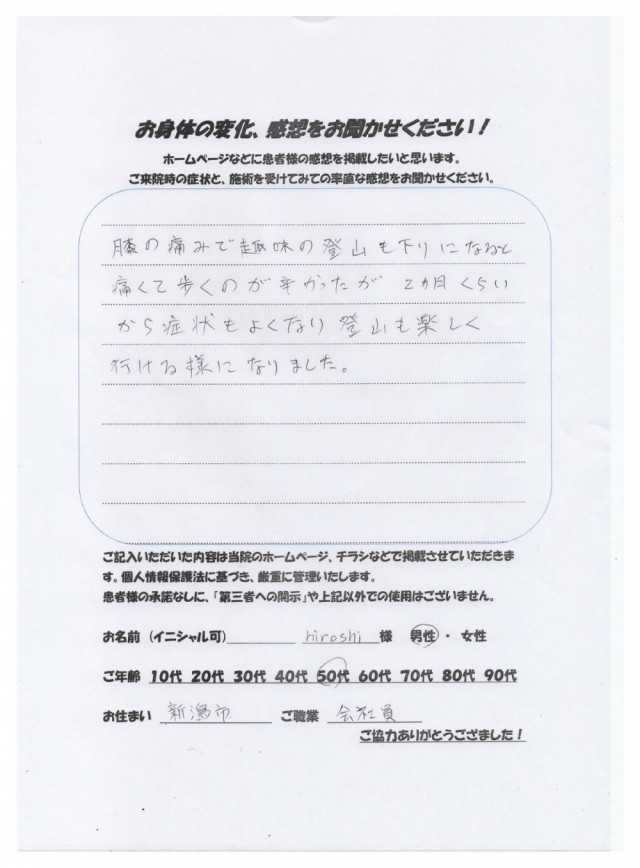 お身体の変化、感想をお聞かせください！
ホームページなどに患者様の感想を掲載したいと思います。
ご来院時の症状と、施術を受けてみての率直な感想をお聞かせください。
膝の痛みで趣味の登山も下りになると
痛くて歩くのが辛かったが 2ヵ月くらい
から症状もよくなり登山も楽しく
行ける様になりました。
ご記入いただいた内容は当院のホームページ、チラシなどで掲載させていただきま
す。個人情報保護法に基づき、厳重に管理いたします。
患者様の承諾なしに、「第三者への開示」や上記以外での使用はございません。
お名前（イニシャル可） hiroshi 様 男性・ 女性
ご年齢 10代 20代 30代 40代 50代 60代 70代 80代 90代
お住まい 新潟市 ご職業 会社員
ご協力ありがとうござました！